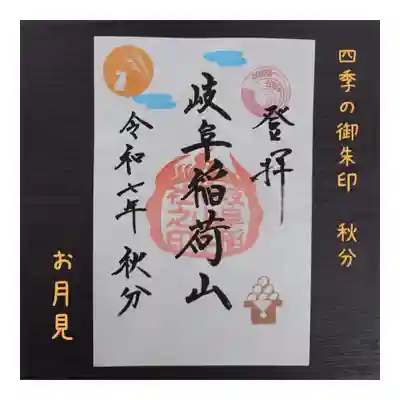 四季の御朱印 秋分
登拝
岐阜稲荷山
令和七年 秋分
お月見